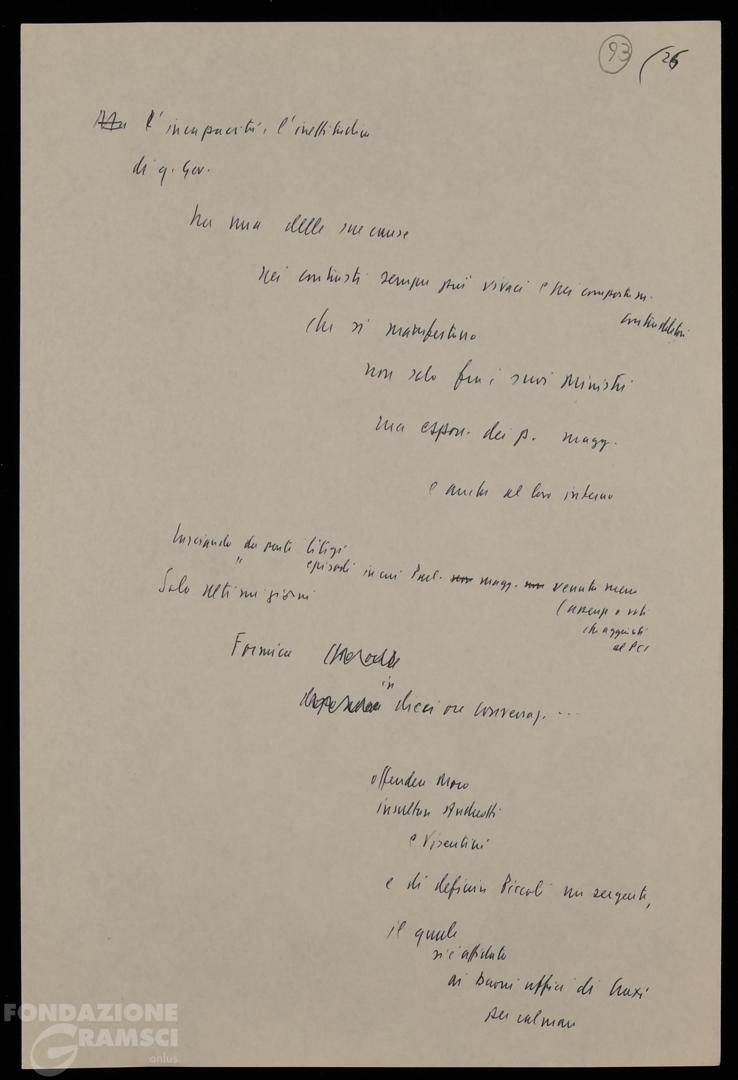 93 (26
L'incapacità, l'inettitudine
di q. Gov.
ha una delle sue cause
nei contrasti sempre più vivaci e nei comportam.
contraddittori
che si manifestano
non solo fra i suoi Ministri
ma espon. dei p. magg.
e anche al loro interno
Lasciando da parte litigi
" episodi in cui magg. venuta meno
(assenze o voti
che aggiunti
al PCI
Solo ultimi giorni
Formica
in
dieci ore
offendere Moro
insultare Andreotti
e Visentini
e di definire Piccoli un sergente,
il quale
si è affidato
ai buoni uffici di Craxi
per calmare
FONDAZIONE
GRAMSCI
onlus